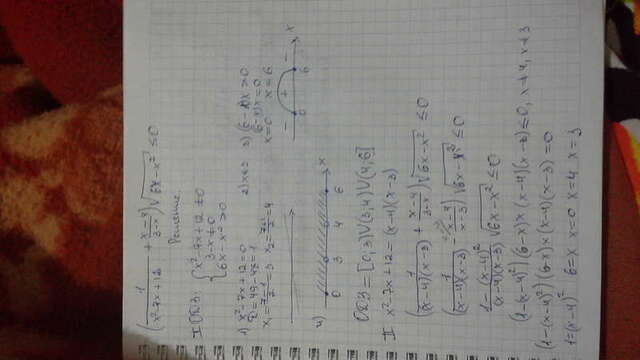 (1/(x²-7x+12) + (x-4)/(3-x)) √(6x-x²) ≤0
Решение
I ОДЗ: { x²-7x+12 ≠0
3-x≠0
6x-x²≥0
1) x²-7x+12=0 2) x≠3 3) (6-x)x≥0
D=49-48=1 (6-x)x=0
x₁=(7-1)/2=3 x₂=(7+1)/2=4 x=0 x=6
- + -
0 6 x
4)
0 3 4 6 x
ОДЗ=[0;3)∪(3;4)∪(4;6]
II x²-7x+12=(x-4)(x-3)
(1/((x-4)(x-3)) + (x-4)/(3-x)) √(6x-x²) ≤0
(1/((x-4)(x-3)) - (x-4)/(x-3)) √(6x-x²) ≤0
(1-(x-4)²)/((x-4)(x-3)) √(6x-x²) ≤0
(1-(x-4)²)(6-x)x(x-4)(x-3)≤0, x≠4, x≠3
(1-(x-4)²)(6-x)x(x-4)(x-3)=0
1=(x-4)² 6=x x=0 x=4 x=3